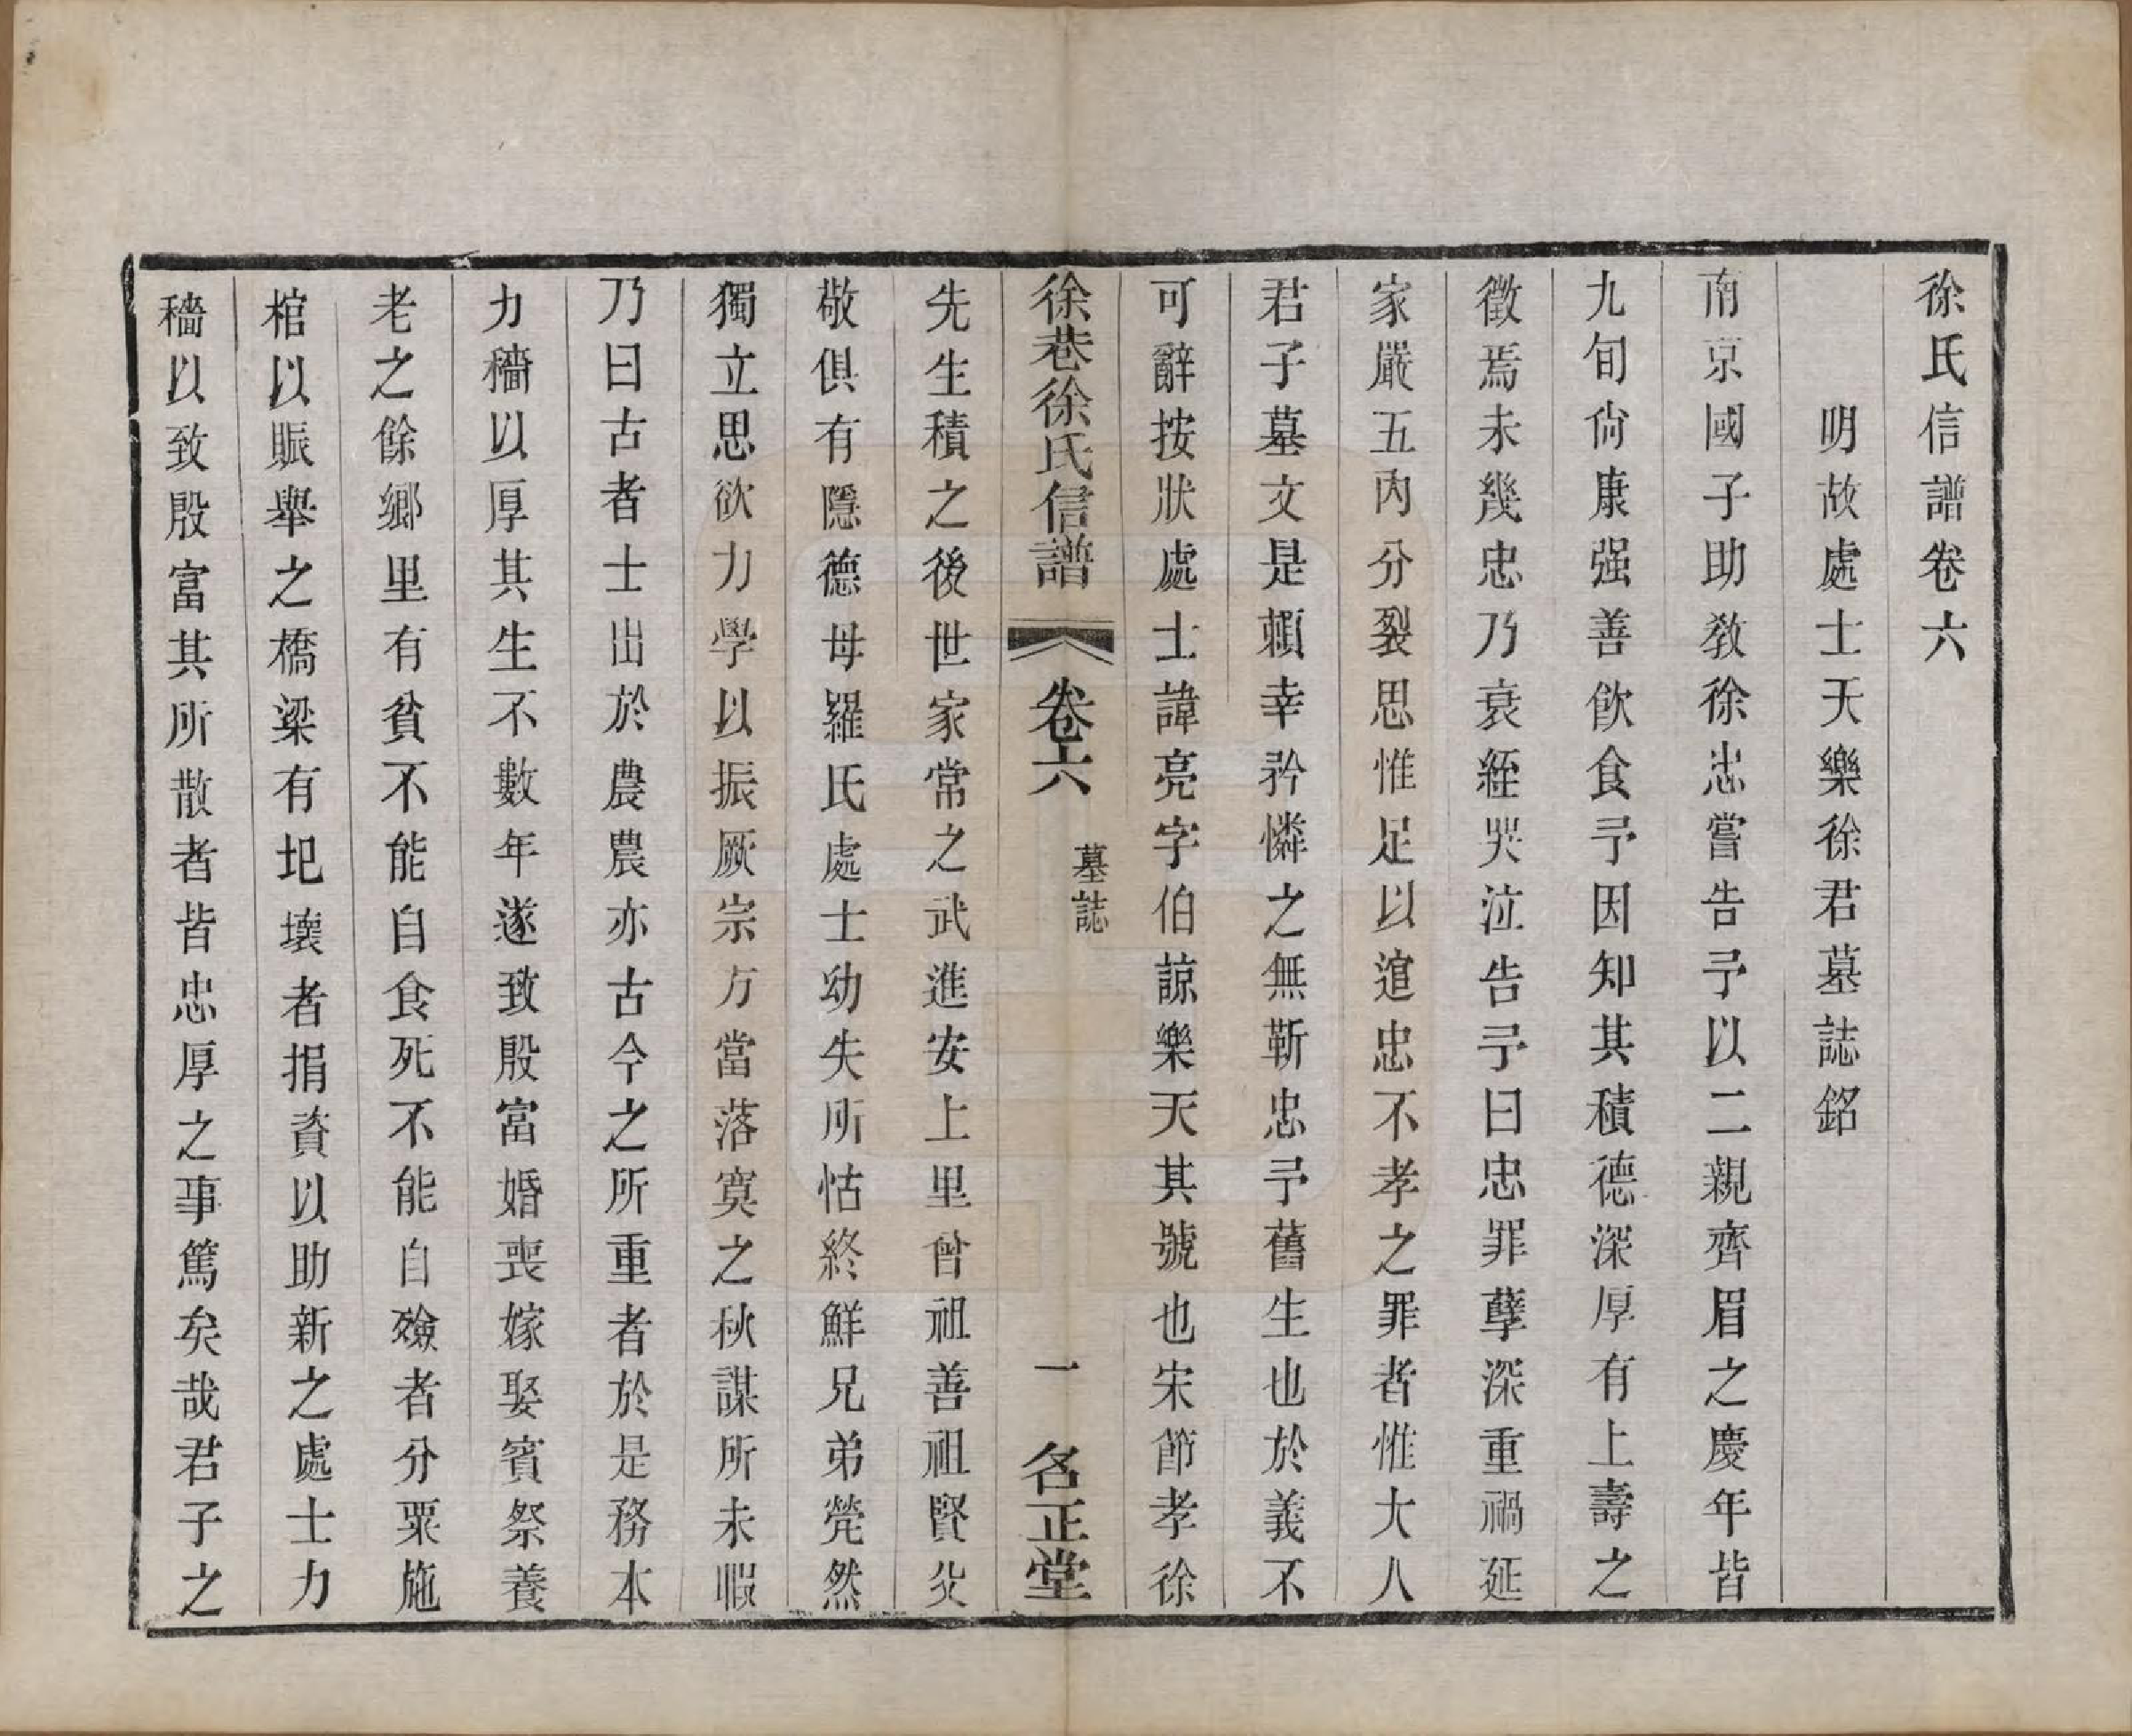 徐氏信譜卷六
明故處士天樂徐君墓誌銘
南京國子助教徐忠嘗告予以二親齊眉之慶年皆
九旬尙康强善飮食予因知其積德深厚有上壽之
徵焉未幾忠乃衰絰哭泣告予曰忠罪孽深重禍延
家嚴五內分裂思惟足以逭忠不孝之罪者惟大人
君子墓文是賴幸矜憐之無靳忠予舊生也於義不
可辭按狀處士諱亮字伯諒樂天其號也宋節孝徐
徐巷徐氏信譜
卷六
墓誌
一
名正堂
先生積之後世家常之武進安上里曾祖善祖賢父
敬俱有隱德母羅氏處士幼失所怙終鮮兄弟煢然
獨立思欲力學以振厥宗方當落寞之秋謀所未暇
乃曰古者士出於農農亦古今之所重者於是務本
力穡以厚其生不數年遂致殷富婚喪嫁娶賓祭養
老之餘鄉里有貧不能自食死不能自殮者分粟施
棺以賑舉之橋梁有圯壞者捐資以助新之處士力
穡以致殷富其所散者皆忠厚之事篤矣哉君子之